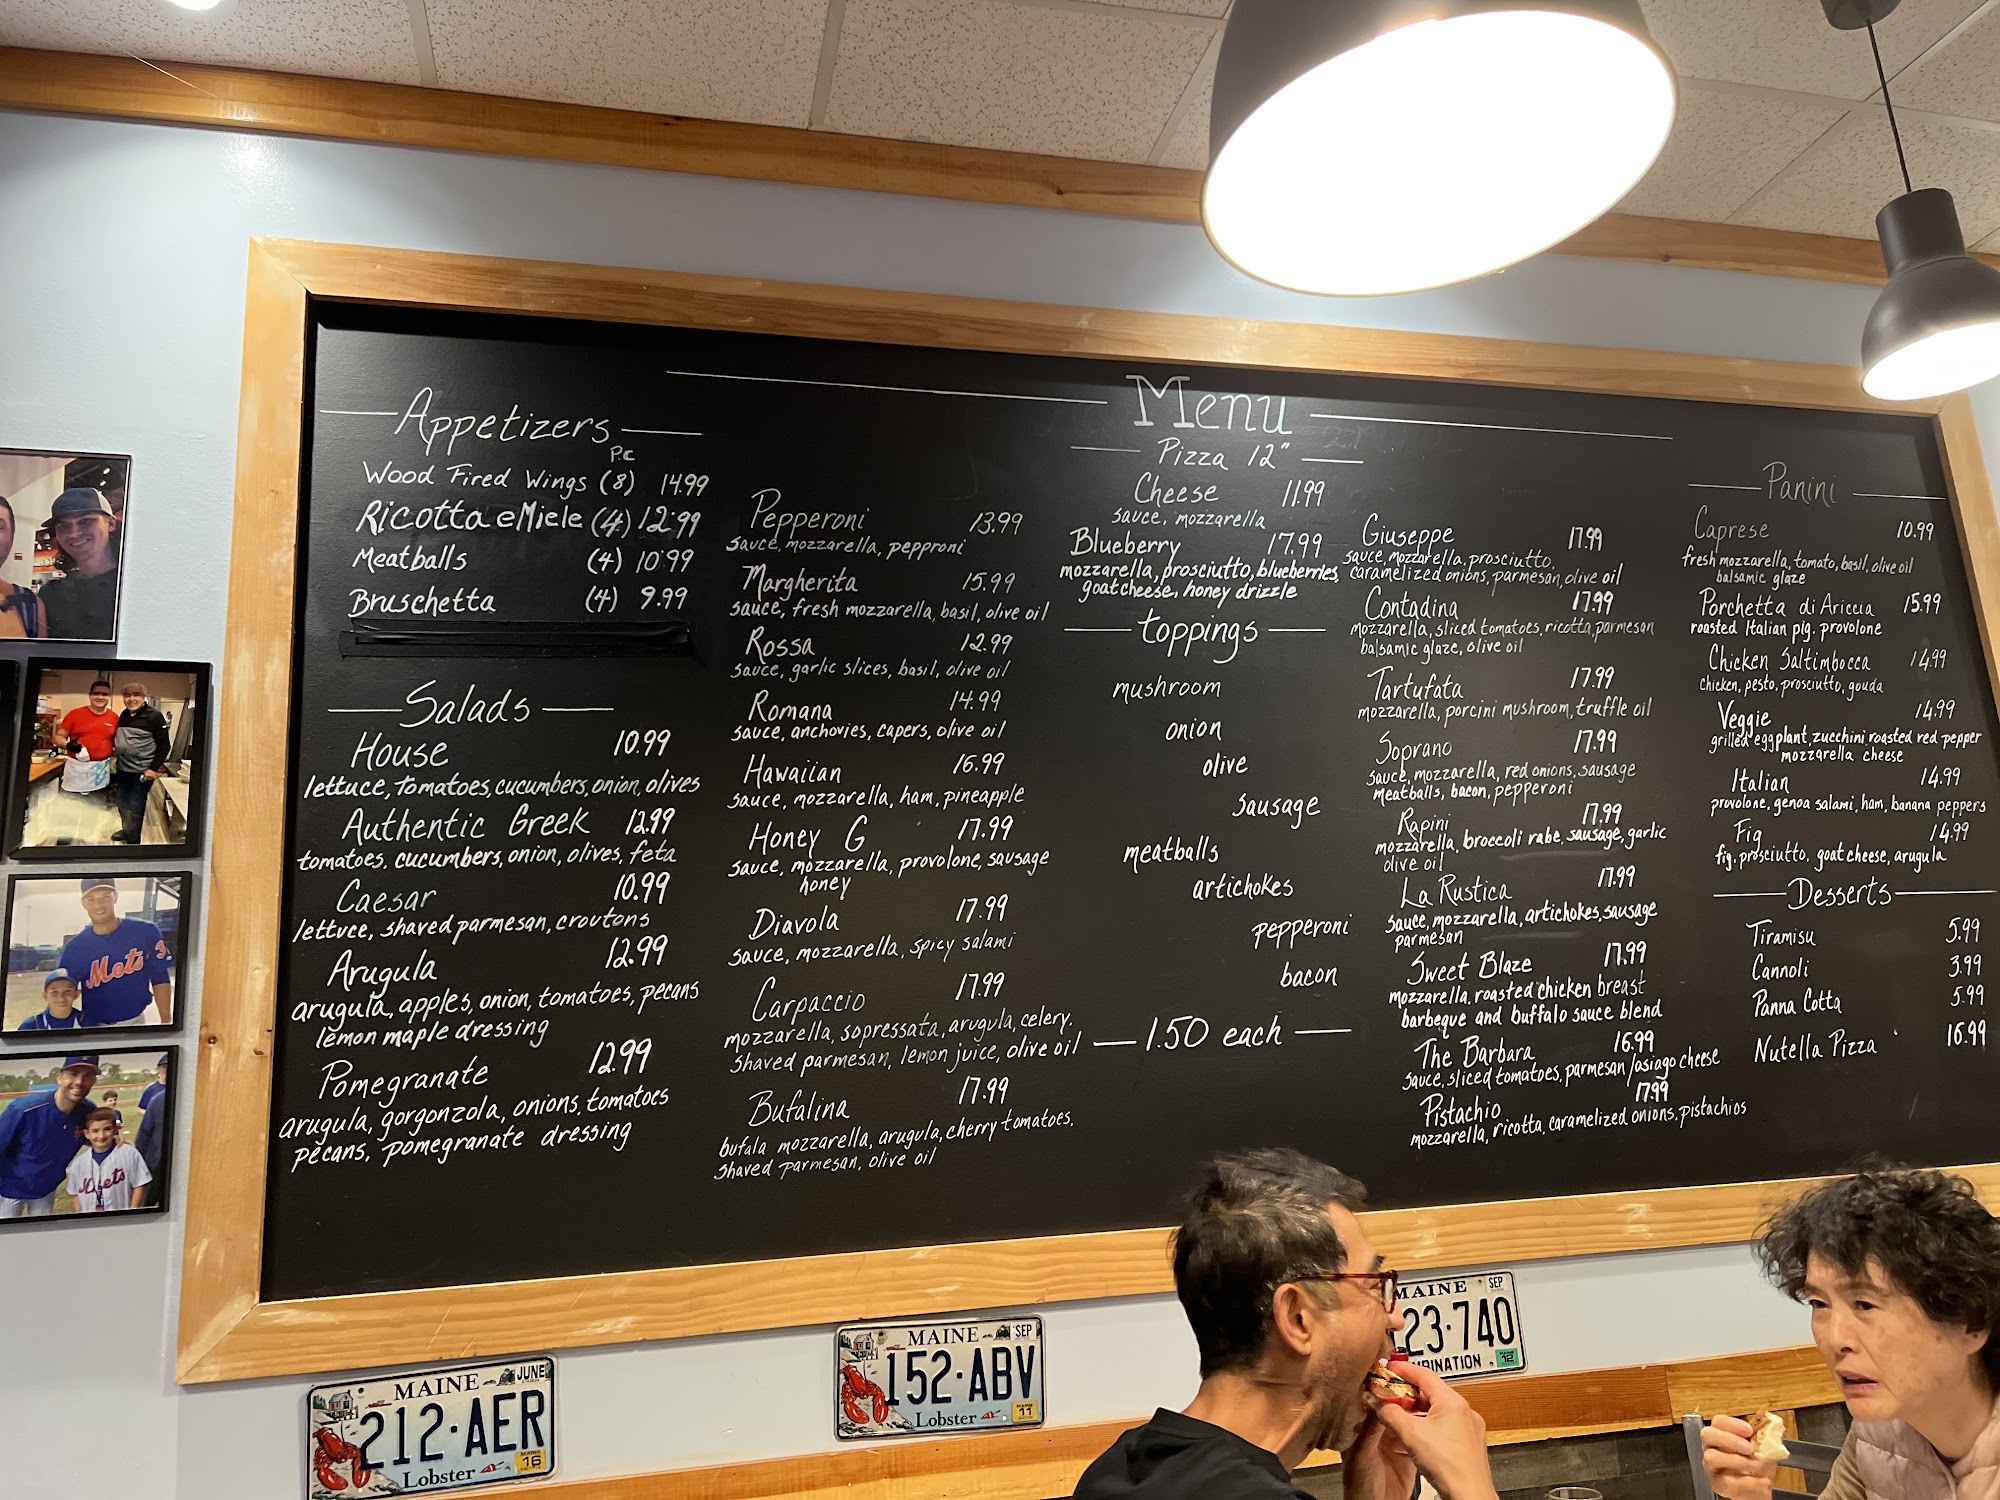 Menu
Appetizers
P.C
Wood Fired Wings (8) 14.99
Ricotta e Miele (4) 12.99
Meatballs (4) 10.99
Bruschetta (4) 9.99
Salads
House 10.99
lettuce, tomatoes, cucumbers, onion, olives
Authentic Greek 12.99
tomatoes, cucumbers, onion, olives, feta
Caesar 10.99
lettuce, shaved parmesan, croutons
Arugula 12.99
arugula, apples, onion, tomatoes, pecans
lemon maple dressing
Pomegranate 12.99
arugula, gorgonzola, onions, tomatoes
pecans, pomegranate dressing
Pizza 12"
Pepperoni 13.99
sauce, mozzarella, pepproni
Margherita 15.99
sauce, fresh mozzarella, basil, olive oil
Rossa 12.99
sauce, garlic slices, basil, olive oil
Romana 14.99
sauce, anchovies, capers, olive oil
Hawaiian 16.99
sauce, mozzarella, ham, pineapple
Honey G 17.99
sauce, mozzarella, provolone, sausage
honey
Diavola 17.99
sauce, mozzarella, spicy salami
Carpaccio 17.99
mozzarella, sopressata, arugula, celery,
shaved parmesan, lemon juice, olive oil
Bufalina 17.99
bufala mozzarella, arugula, cherry tomatoes,
shaved parmesan, olive oil
Cheese 11.99
sauce, mozzarella
Blueberry 17.99
mozzarella, prosciutto, blueberries,
goat cheese, honey drizzle
toppings
mushroom
onion
olive
sausage
meatballs
artichokes
pepperoni
bacon
1.50 each
Giuseppe 17.99
sauce, mozzarella, prosciutto,
caramelized onions, parmesan, olive oil
Contadina 17.99
mozzarella, sliced tomatoes, ricotta, parmesan
balsamic glaze, olive oil
Tartufata 17.99
mozzarella, porcini mushroom, truffle oil
Soprano 17.99
sauce, mozzarella, red onions, sausage
meatballs, bacon, pepperoni
Rapini 17.99
mozzarella, broccoli rabe, sausage, garlic
olive oil
La Rustica 17.99
sauce, mozzarella, artichokes, sausage
parmesan
Sweet Blaze 17.99
mozzarella, roasted chicken breast
barbeque and buffalo sauce blend
The Barbara 16.99
sauce, sliced tomatoes, parmesan/asiago cheese
Pistachio 17.99
mozzarella, ricotta, caramelized onions, pistachios
Panini
Caprese 10.99
fresh mozzarella, tomato, basil, olive oil
balsamic glaze
Porchetta di Ariccia 15.99
roasted Italian pig, provolone
Chicken Saltimbocca 14.99
chicken, pesto, prosciutto, gouda
Veggie 14.99
grilled eggplant, zucchini roasted red pepper
mozzarella cheese
Italian 14.99
provolone, genoa salami, ham, banana peppers
Fig 14.99
fig, prosciutto, goat cheese, arugula
Desserts
Tiramisu 5.99
Cannoli 3.99
Panna Cotta 5.99
Nutella Pizza 16.99
Mets
Mets
MAINE JUNE
212·AER
Lobster 16
MAINE SEP
152·ABV
Lobster 11
MAINE SEP
23·740
12